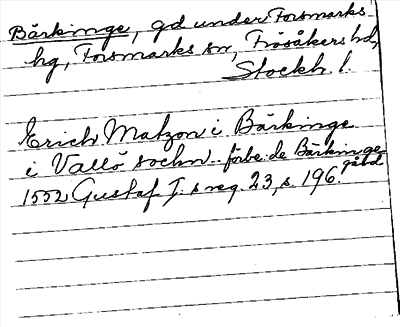 Bärkinge, gd under Forsmarks
hg, Forsmarks sn, Frösåkers hd,
Stockh. l.
Erich Matzon i Bärkinge
i Vallö sochn.. förbe. de Bärkinge
gård
1552 Gustaf I. s reg. 23, s. 196.